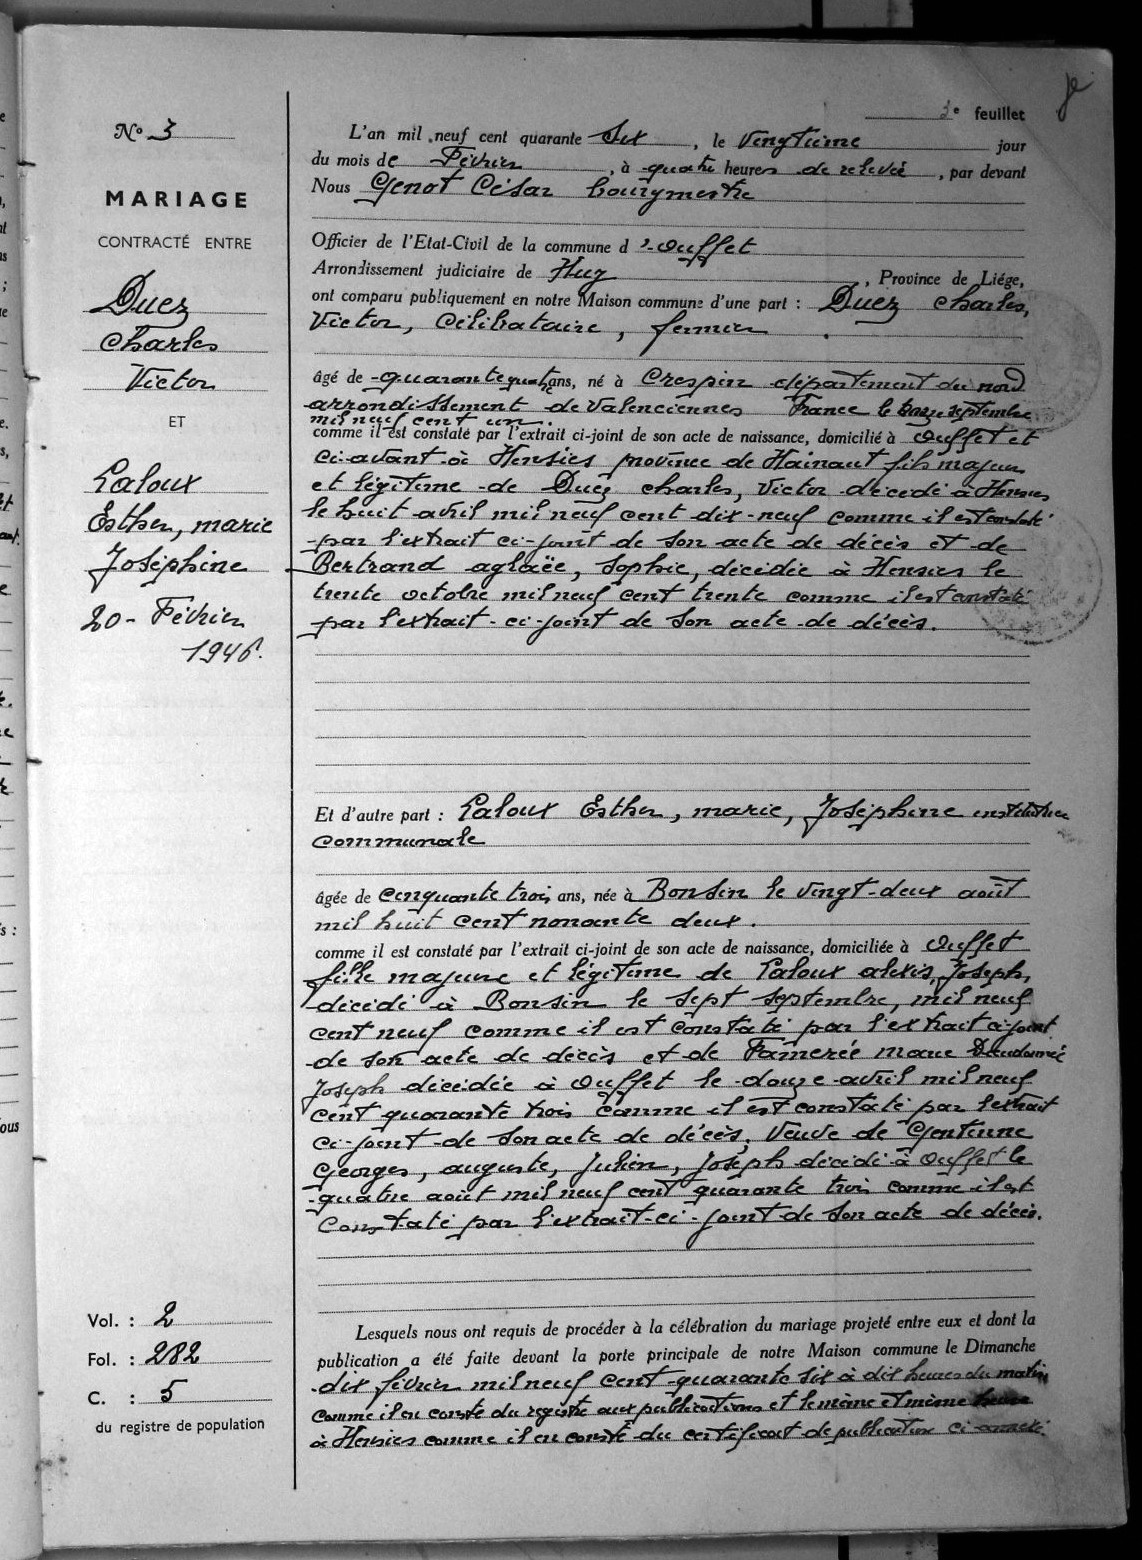 3e feuillet
N° 3
MARIAGE
CONTRACTÉ ENTRE
Duez
Charles
Victor
ET
Laloux
Esther, marie
Joséphine
20 - Février
1946.
Vol. : 2
Fol. : 282
C. : 5
du registre de population
L'an mil neuf cent quarante six, le vingtième jour
du mois de Février, à quatre heures de relevée, par devant
Nous Genot César bourgmestre
Officier de l'Etat-Civil de la commune d'Ouffet
Arrondissement judiciaire de Huy, Province de Liége,
ont comparu publiquement en notre Maison commune d'une part : Duez Charles,
Victor, célibataire, fermier
âgé de quarante quatre ans, né à Crespin département du nord
arrondissement de Valenciennes France le septembre
mil neuf cent un.
comme il est constaté par l'extrait ci-joint de son acte de naissance, domicilié à Ouffet et
ci-avant à Hensies province de Hainaut fils majeur
et légitime de Duez Charles, Victor décédé à Hensies
le huit avril mil neuf cent dix-neuf comme il est constaté
par l'extrait ci-joint de son acte de décès et de
Bertrand aglaëe, Sophie, décédée à Hensies le
trente octobre mil neuf cent trente comme il est constaté
par l'extrait ci-joint de son acte de décès.
Et d'autre part : Laloux Esther, marie, Joséphine institutrice
communale
âgée de cinquante trois ans, née à Bonsin le vingt-deux août
mil huit cent nonante deux.
comme il est constaté par l'extrait ci-joint de son acte de naissance, domiciliée à Ouffet
fille majeure et légitime de Laloux alexis, Joseph,
décédé à Bonsin le sept septembre, mil neuf
cent neuf comme il est constaté par l'extrait ci-joint
de son acte de décès et de Famerée marie
Joseph décédée à Ouffet le douze avril mil neuf
cent quarante trois comme il est constaté par l'extrait
ci-joint de son acte de décès, Veuve de Gentinne
Georges, auguste, Julien, Joseph décédé à Ouffet le
quatre août mil neuf cent quarante trois comme il est
constaté par l'extrait ci-joint de son acte de décès.
Lesquels nous ont requis de procéder à la célébration du mariage projeté entre eux et dont la
publication a été faite devant la porte principale de notre Maison commune le Dimanche
dix février mil neuf cent quarante six à dix heures du matin
comme il en conste du registre aux publications et le même et même heure
à Hensies comme il en conste du certificat de publication ci-annexé.